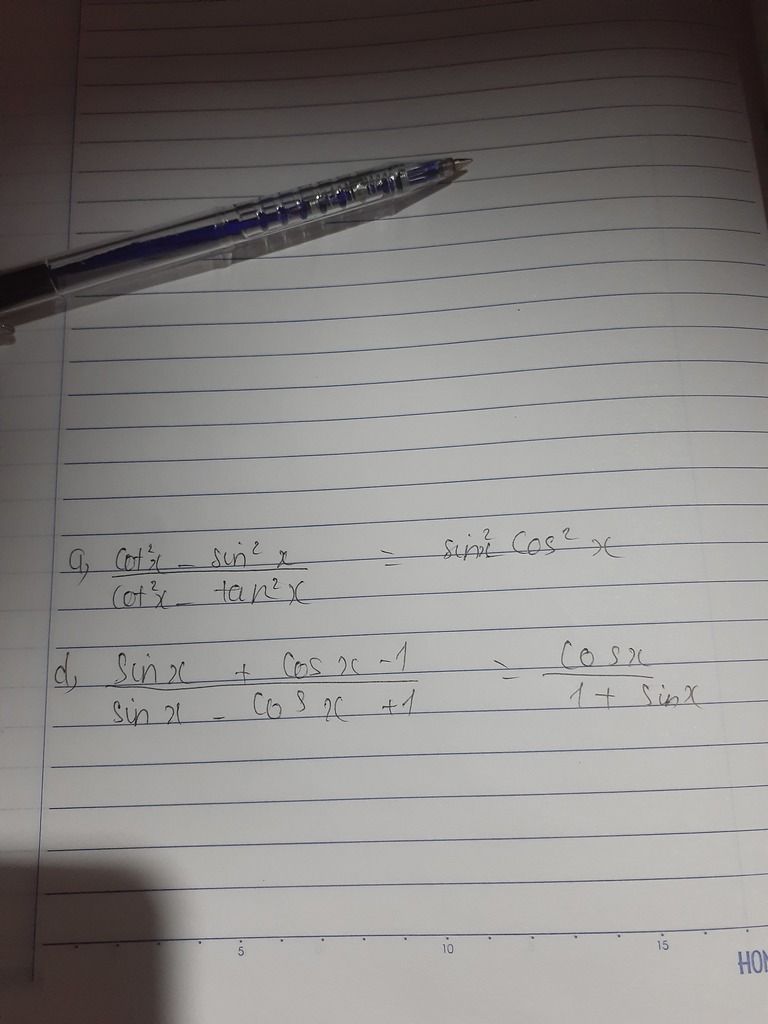 a, (cot²x - sin²x)/(cot²x - tan²x) = sin²x cos²x
d, (sin x + cos x - 1)/(sin x - cos x + 1) = cos x/(1 + sin x)
5 10 15
HON